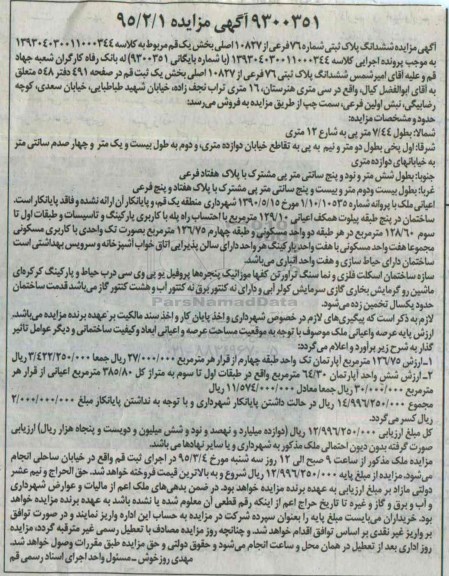 ۹۳۰۰۳۵۱ آگهی مزایده ۹۵/۲/۱
آگهی مزایده ششدانگ پلاک ثبتی شماره ۷۶ فرعی از ۱۰۸۲۷ اصلی بخش یک قم مربوط به کلاسه ۱۳۹۳۰۴۰۳۰۰۱۱۰۰۰۳۴۴
به موجب پرونده اجرایی کلاسه ۱۳۹۳۰۴۰۳۰۰۱۱۰۰۰۳۴۴ (با شماره بایگانی ۹۳۰۰۳۵۱) له بانک رفاه کارگران شعبه جهاد
قم و علیه آقای امیرشمس ششدانگ پلاک ثبتی ۷۶ فرعی از ۱۰۸۲۷ اصلی بخش یک ثبت قم در صفحه ۴۹۱ دفتر ۵۴۸ متعلق
به آقای ابوالفضل کیال، واقع در سی متری هنرستان، ۱۶ متری تراب نجف زاده، خیابان شهید طباطبایی، خیابان سعدی، کوچه
رضابیگی، نبش اولین فرعی، سمت چپ از طریق مزایده به فروش می‌رسد:
حدود و مشخصات مزایده:
شمالا: بطول ۷/۴۴ متر پی به شارع ۱۲ متری
شرقا: اول پخی بطول دو متر و نیم به پی به تقاطع خیابان دوازده متری، و دوم به طول بیست و یک متر و چهار صدم سانتی متر
به خیابانهای دوازده متری
جنوبا: بطول شش متر و نود و پنج سانتی متر پی مشترک با پلاک هفتاد فرعی
غربا: بطول بیست ودوم متر و بیست و پنج سانتی متر پی مشترک با پلاک هفتاد و پنج فرعی
اعیانی ملک با پروانه شماره ۱/۱۰/۱۰۵۳۵ مورخ ۱۳۹۰/۵/۱۵ شهرداری منطقه یک قم، و پایانکار آن ارائه نشده و فاقد پایانکار است.
ساختمان در پنج طبقه پیلوت همکف اعیانی ۱۲۹/۱۰ مترمربع با احتساب راه پله با کاربری پارکینگ و تاسیسات و طبقات اول تا
سوم ۱۲۸/۶۰ مترمربع در هر طبقه دو واحد مسکونی و طبقه چهارم ۱۲۶/۷۵ مترمربع بصورت تک واحدی با کاربری مسکونی
مجموعا هفت واحد مسکونی با هفت واحد پارکینگ هر واحد دارای سالن پذیرایی اتاق خواب آشپزخانه و سرویس بهداشتی است
ساختمان دارای حیاط سازی و هفت واحد انباری می‌باشد.
سازه ساختمان اسکلت فلزی و نما سنگ تراورتن کفها موزائیک پنجره‌ها پروفیل یو پی وی سی درب حیاط و پارکینگ کرکره‌ای
ماشین رو گرمایش بخاری گازی سرمایش کولر آبی و دارای نه کنتور برق نه کنتور آب و هشت کنتور گاز می‌باشد قدمت ساختمان
حدود یکسال تخمین زده می‌شود.
لازم به ذکر است که پیگیری‌های لازم در خصوص شهرداری و اخذ پایان کار و اخذ سند مالکیت بر عهده برنده مزایده می‌باشد.
ارزش پایه عرصه واعیانی ملک موصوف با توجه به موقعیت مساحت عرصه و اعیانی ابعاد وکیفیت ساختمانی و دیگر عوامل تاثیر
گذار به شرح زیر برآورد و اعلام می‌گردد:
۱ـ ارزش ۱۲۶/۷۵ مترمربع آپارتمان تک واحد طبقه چهارم از قرار هر مترمربع ۲۷/۰۰۰/۰۰۰ ریال جمعا ۳/۴۲۲/۲۵۰/۰۰۰ ریال
۲ـ ارزش شش واحد آپارتمان ۶۴/۳۰ مترمربع واقع در طبقات اول تا سوم به متراژ کل ۳۸۵/۸۰ مترمربع اعیانی از قرار هر
مترمربع ۳۰/۰۰۰/۰۰۰ ریال جمعا معادل ۱۱/۵۷۴/۰۰۰/۰۰۰ ریال
مجموع ۱۴/۹۹۶/۲۵۰/۰۰۰ ریال در حالت داشتن پایانکار شهرداری و با توجه به نداشتن پایانکار مبلغ ۲/۰۰۰/۰۰۰/۰۰۰
ریال کسر می‌گردد.
کل مبلغ ارزیابی ۱۲/۹۹۶/۲۵۰/۰۰۰ ریال (دوازده میلیارد و نهصد و نود و شش میلیون و دویست و پنجاه هزار ریال) ارزیابی
صورت گرفته بدون دیون احتمالی ملک مذکور به شهرداری و یا سایر نهادها می باشد.
مزایده ملک مذکور از ساعت ۹ صبح الی ۱۲ روز سه شنبه مورخ ۹۵/۲/۴ در اجرای ثبت قم واقع در خیابان ساحلی انجام
می‌شود، مزایده از مبلغ پایه ۱۲/۹۹۶/۲۵۰/۰۰۰ ریال شروع و به بالاترین قیمت فروخته خواهد شد. حق الحراج و نیم عشر
دولتی مازاد بر مبلغ ارزیابی به عهده برنده مزایده خواهد بود در ضمن بدهی‌های ملک اعم از مالیات و عوارض شهرداری
و آب و برق و گاز و غیره تا تاریخ حراج اعم از اینکه رقم قطعی آن معلوم شده یا نشده باشد به عهده برنده مزایده خواهد
بود. خریداران می‌بایست مبلغ پایه را بعنوان سپرده شرکت در مزایده به حساب این اداره واریز نمایند و در صورت توافق
بر واریز غیر نقدی بر اساس توافق اقدام خواهد شد. و چنانچه روز مزایده مصادف با تعطیل رسمی غیر مترقبه گردد، مزایده
روز اداری بعد از تعطیل در همان محل و ساعت انجام می‌شود و حقوق دولتی و حق مزایده طبق مقررات وصول خواهد شد.
مهدی روزخوش ـ مسئول واحد اجرای اسناد رسمی قم
ParsNamadData